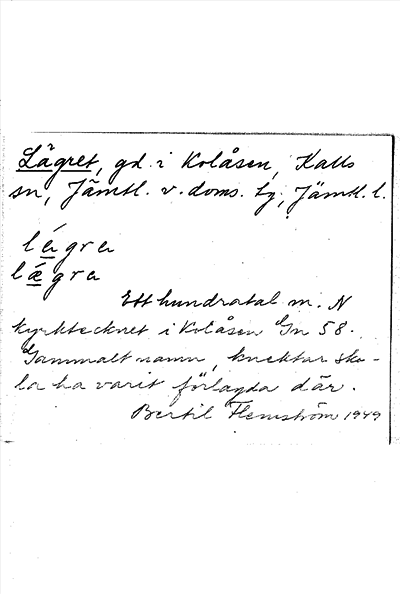 Lägret, gd. i Kolåsen, Kalls
sn, Jämtl. v. doms. tg, Jämtl. l.
lágra
lǽgra
Ett hundratal m. N
kyrktecknet i Kolåsen Gn 58.
Gammalt namn, knektar sku-
la ha varit förlagda där.
Bertil Flemström 1949